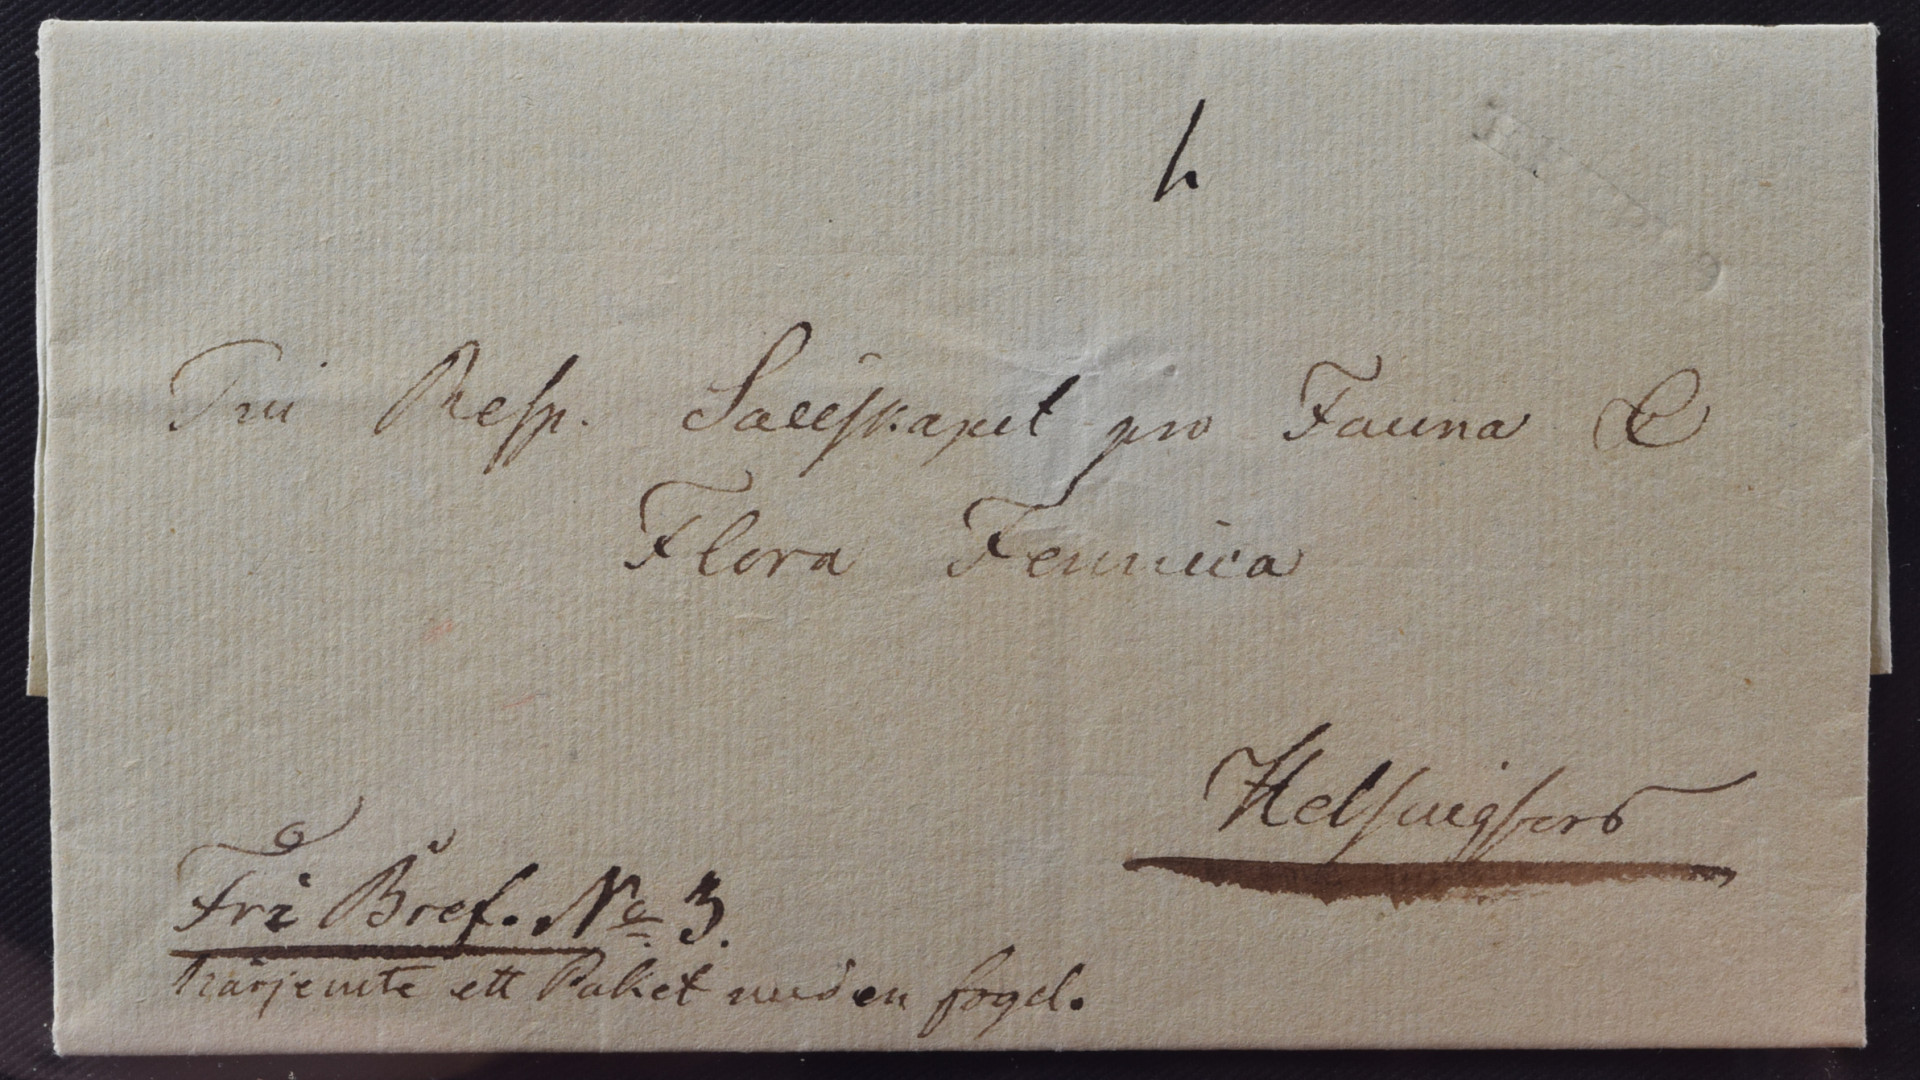 h
Till Resp. Sällskapet pro Fauna &
Flora Fennica
Helsingfors
Fri Bref. No 3.
härjemte ett Paket med en fogel.